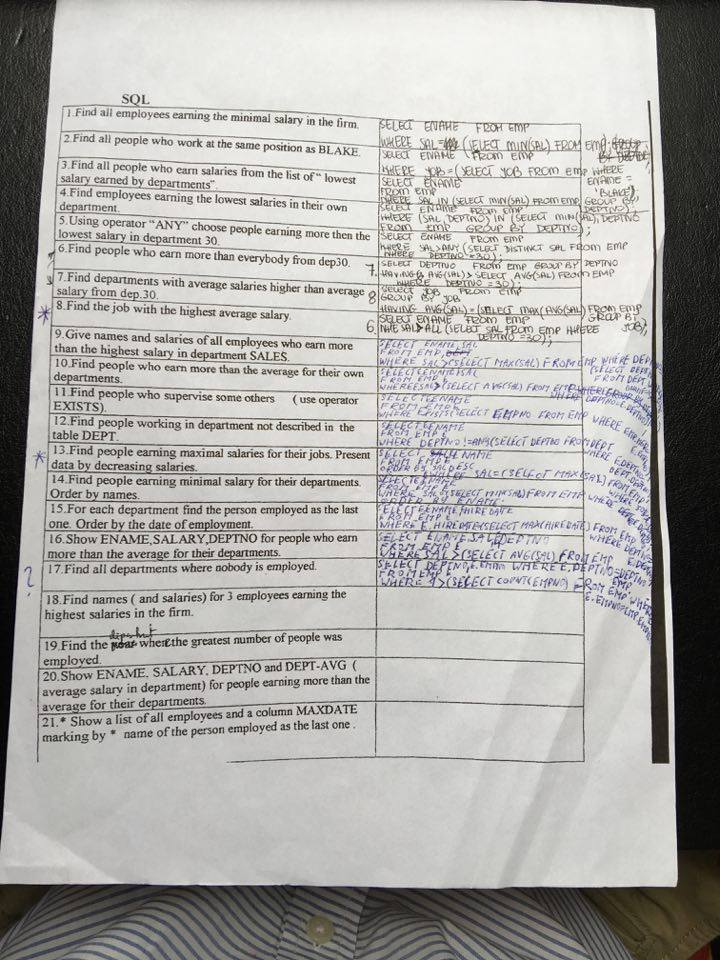 SQL
1.Find all employees earning the minimal salary in the firm.
SELECT ENAME FROM EMP
WHERE SAL= (SELECT MIN(SAL) FROM EMP
2.Find all people who work at the same position as BLAKE.
SELECT ENAME FROM EMP
WHERE JOB=(SELECT JOB FROM EMP WHERE
ENAME =
'BLAKE')
3.Find all people who earn salaries from the list of “ lowest
salary earned by departments”.
SELECT ENAME
FROM EMP
WHERE SAL IN (SELECT MIN(SAL) FROM EMP GROUP BY
DEPTNO);
4.Find employees earning the lowest salaries in their own
department.
SELECT ENAME FROM EMP
WHERE (SAL, DEPTNO) IN (SELECT MIN(SAL), DEPTNO
FROM EMP GROUP BY DEPTNO);
5.Using operator “ANY” choose people earning more then the
lowest salary in department 30.
SELECT ENAME FROM EMP
WHERE SAL>ANY (SELECT DISTINCT SAL FROM EMP
WHERE DEPTNO =30);
6.Find people who earn more than everybody from dep30.
7. SELECT DEPTNO FROM EMP GROUP BY DEPTNO
HAVING AVG(SAL)> SELECT AVG(SAL) FROM EMP
WHERE DEPTNO =30);
7.Find departments with average salaries higher than average
salary from dep.30.
8 SELECT JOB FROM EMP
GROUP BY JOB
HAVING AVG(SAL)=(SELECT MAX(AVG(SAL) FROM EMP
GROUP BY
JOB);
* 8.Find the job with the highest average salary.
6 SELECT ENAME FROM EMP
WHE SAL>ALL (SELECT SAL FROM EMP WHERE
DEPTNO =30);
9.Give names and salaries of all employees who earn more
than the highest salary in department SALES.
SELECT ENAME, SAL
FROM EMP,
WHERE SAL>(SELECT MAX(SAL) FROM EMP WHERE DEPTNO=
(SELECT DEPTNO
FROM DEPT
10.Find people who earn more than the average for their own
departments.
SELECT ENAME, SAL
FROM EMP E
WHERE E.SAL>(SELECT AVG(SAL) FROM EMP
WHERE
11.Find people who supervise some others ( use operator
EXISTS).
SELECT E.ENAME
FROM EMP E
WHERE EXISTS (SELECT EMPNO FROM EMP WHERE
12.Find people working in department not described in the
table DEPT.
SELECT E.ENAME
FROM EMP E
WHERE DEPTNO !=ANY(SELECT DEPTNO FROM DEPT
* 13.Find people earning maximal salaries for their jobs. Present
data by decreasing salaries.
SELECT
FROM EMP E
ORDER BY SAL DESC
SAL=(SELECT MAX(SAL) FROM EMP
14.Find people earning minimal salary for their departments.
Order by names.
SELECT E.ENAME
FROM EMP E
WHERE SAL=(SELECT MIN(SAL) FROM EMP WHERE
ORDER BY ENAME
15.For each department find the person employed as the last
one. Order by the date of employment.
SELECT E.ENAME, HIREDATE
FROM EMP E
WHERE E.HIREDATE=(SELECT MAX(HIREDATE) FROM EMP
16.Show ENAME,SALARY,DEPTNO for people who earn
more than the average for their departments.
SELECT ENAME, SAL, DEPTNO
FROM EMP E
WHERE SAL>(SELECT AVG(SAL) FROM EMP
? 17.Find all departments where nobody is employed.
FROM EMP E
WHERE 1>(SELECT COUNT(EMPNO) FROM EMP WHERE
18.Find names ( and salaries) for 3 employees earning the
highest salaries in the firm.
19.Find the where the greatest number of people was
employed.
20.Show ENAME, SALARY, DEPTNO and DEPT-AVG (
average salary in department) for people earning more than the
average for their departments.
21.* Show a list of all employees and a column MAXDATE
marking by * name of the person employed as the last one .